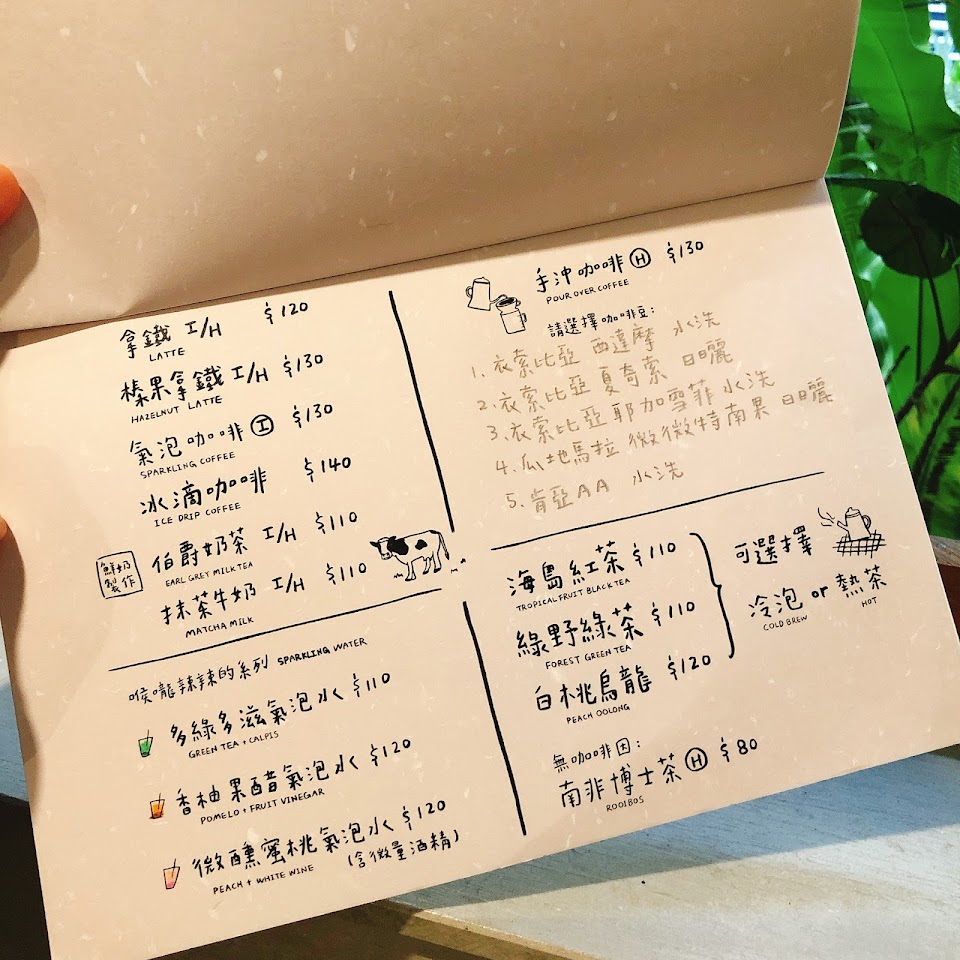 拿鐵 I/H $120
LATTE
榛果拿鐵 I/H $130
HAZELNUT LATTE
氣泡咖啡 I $130
SPARKLING COFFEE
冰滴咖啡 $140
ICE DRIP COFFEE
鮮奶製作
伯爵奶茶 I/H $110
EARL GREY MILK TEA
抹茶牛奶 I/H $110
MATCHA MILK
喉嚨辣辣的系列 SPARKLING WATER
多綠多滋氣泡水 $110
GREEN TEA + CALPIS
香柚果醋氣泡水 $120
POMELO + FRUIT VINEGAR
微醺蜜桃氣泡水 $120
PEACH + WHITE WINE (含微量酒精)
手沖咖啡 H $130
POUR OVER COFFEE
請選擇咖啡豆:
1. 衣索比亞 西達摩 水洗
2. 衣索比亞 夏奇索 日曬
3. 衣索比亞 耶加雪菲 水洗
4. 瓜地馬拉 微微特南果 日曬
5. 肯亞AA 水洗
海島紅茶 $110
TROPICAL FRUIT BLACK TEA
綠野綠茶 $110
FOREST GREEN TEA
白桃烏龍 $120
PEACH OOLONG
可選擇
冷泡 or 熱茶
COLD BREW HOT
無咖啡因:
南非博士茶 H $80
ROOIBOS